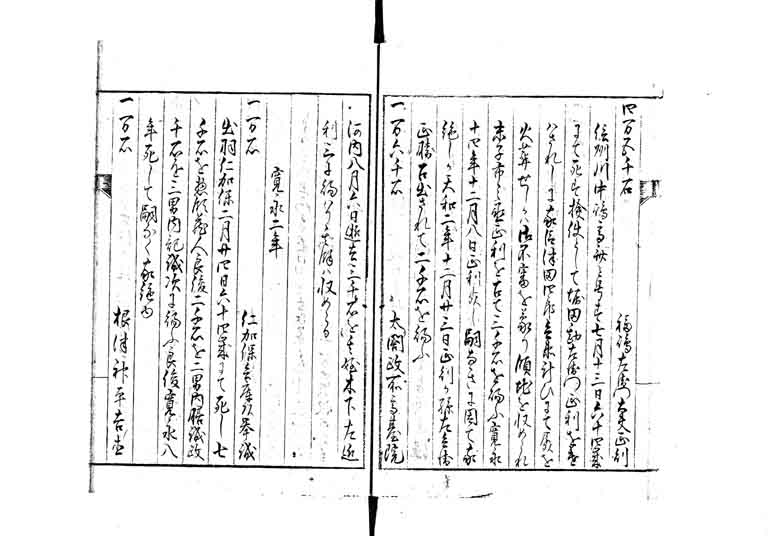 四万五千石　福嶋左衛門大夫正則
信州川中嶋高井ニ而七月十三日六十四歳
にて死す検使として堀田勘左衛門正利を遣
ハされしに家臣津田四郎兵衛計ひにて死を
火葬せしハ御不審を蒙り領地を収められ
末子市之丞正利を召て三千石を給ふ寛永
十四年十二月八日正利死し嗣なきに因て家
絶しか天和二年十二月廿三日正利か孫左兵衛
正勝召出されて二千石を給ふ
一万六千石　太閤政所高臺院
河内八月六日逝去三千石を甥木下左近
利三に給ハり其餘ハ収めらる
寛永二年
一万石　仁加保兵庫頭挙誠
出羽仁加保二月廿四日六十四歳にて死し七
千石を惣領蔵人良俊二千石を二男内膳誠政
千石を三男内記誠次に給ふ良俊寛永八
年死して嗣なく家絶ゆ
一万石　根津神平吉直